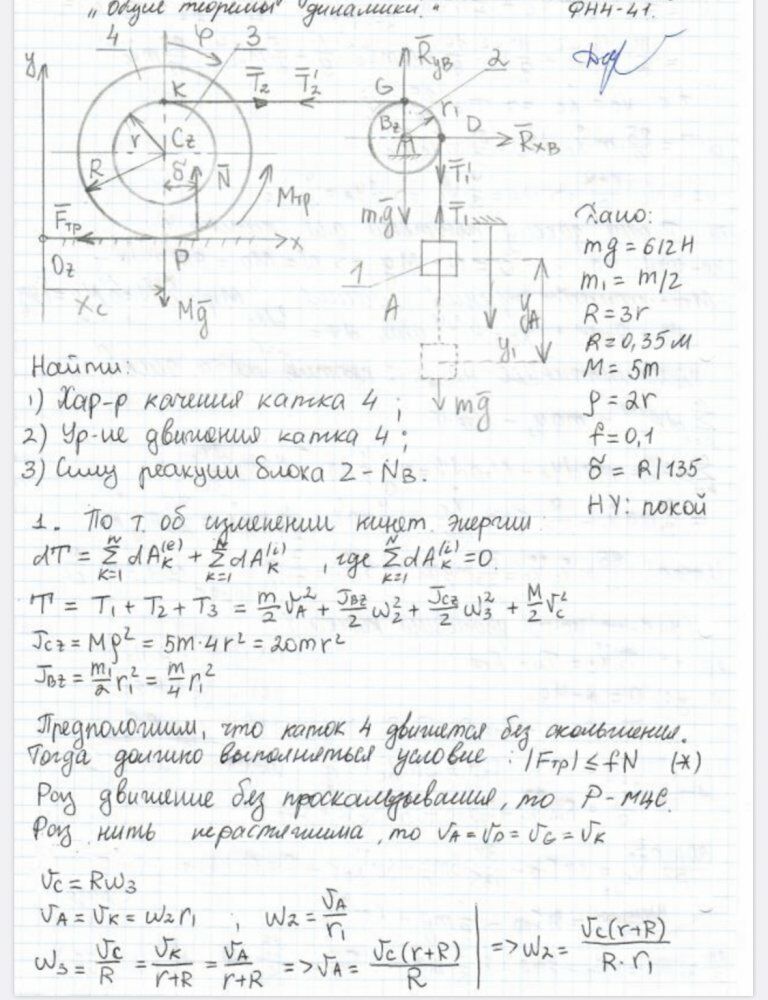 „Общие теоремы динамики." ФН4-41.
4 φ 3
y K T̅₂ T̅₂' G R̅yB 2
r Cz Bz r₁ D R̅xB
R δ N̅ Mтр T̅₁'
F̅тр m₁g̅ T̅₁
Oz P x 1
xc Mg̅ A y₁ yA
mg̅
Дано:
mg = 612 Н
m₁ = m/2
R = 3r
R = 0,35 м
M = 5m
ρ = 2r
f = 0,1
δ = R/135
НУ: покой
Найти:
1) Хар-р качения катка 4 ;
2) Ур-ие движения катка 4 ;
3) Силу реакции блока 2 - N̅B.
1. По т. об изменении кинет. энергии:
dT = Σ(k=1..N) dAₖ⁽ᵉ⁾ + Σ(k=1..N) dAₖ⁽ⁱ⁾ , где Σ(k=1..N) dAₖ⁽ⁱ⁾ = 0.
T = T₁ + T₂ + T₃ = m/2 vA² + JBz/2 ω₂² + JCz/2 ω₃² + M/2 vc²
JCz = Mρ² = 5m·4r² = 20mr²
JBz = m₁/2 r₁² = m/4 r₁²
Предположим, что каток 4 движется без скольжения.
Тогда должно выполняться условие : |Fтр| ≤ fN (*)
Раз движение без проскальзывания, то P - МЦС.
Раз нить нерастяжима, то vA = vD = vG = vK
vC = Rω₃
vA = vK = ω₂r₁ ; ω₂ = vA/r₁
ω₃ = vC/R = vK/(r+R) = vA/(r+R) => vA = vC(r+R)/R | => ω₂ = vC(r+R)/(R·r₁)